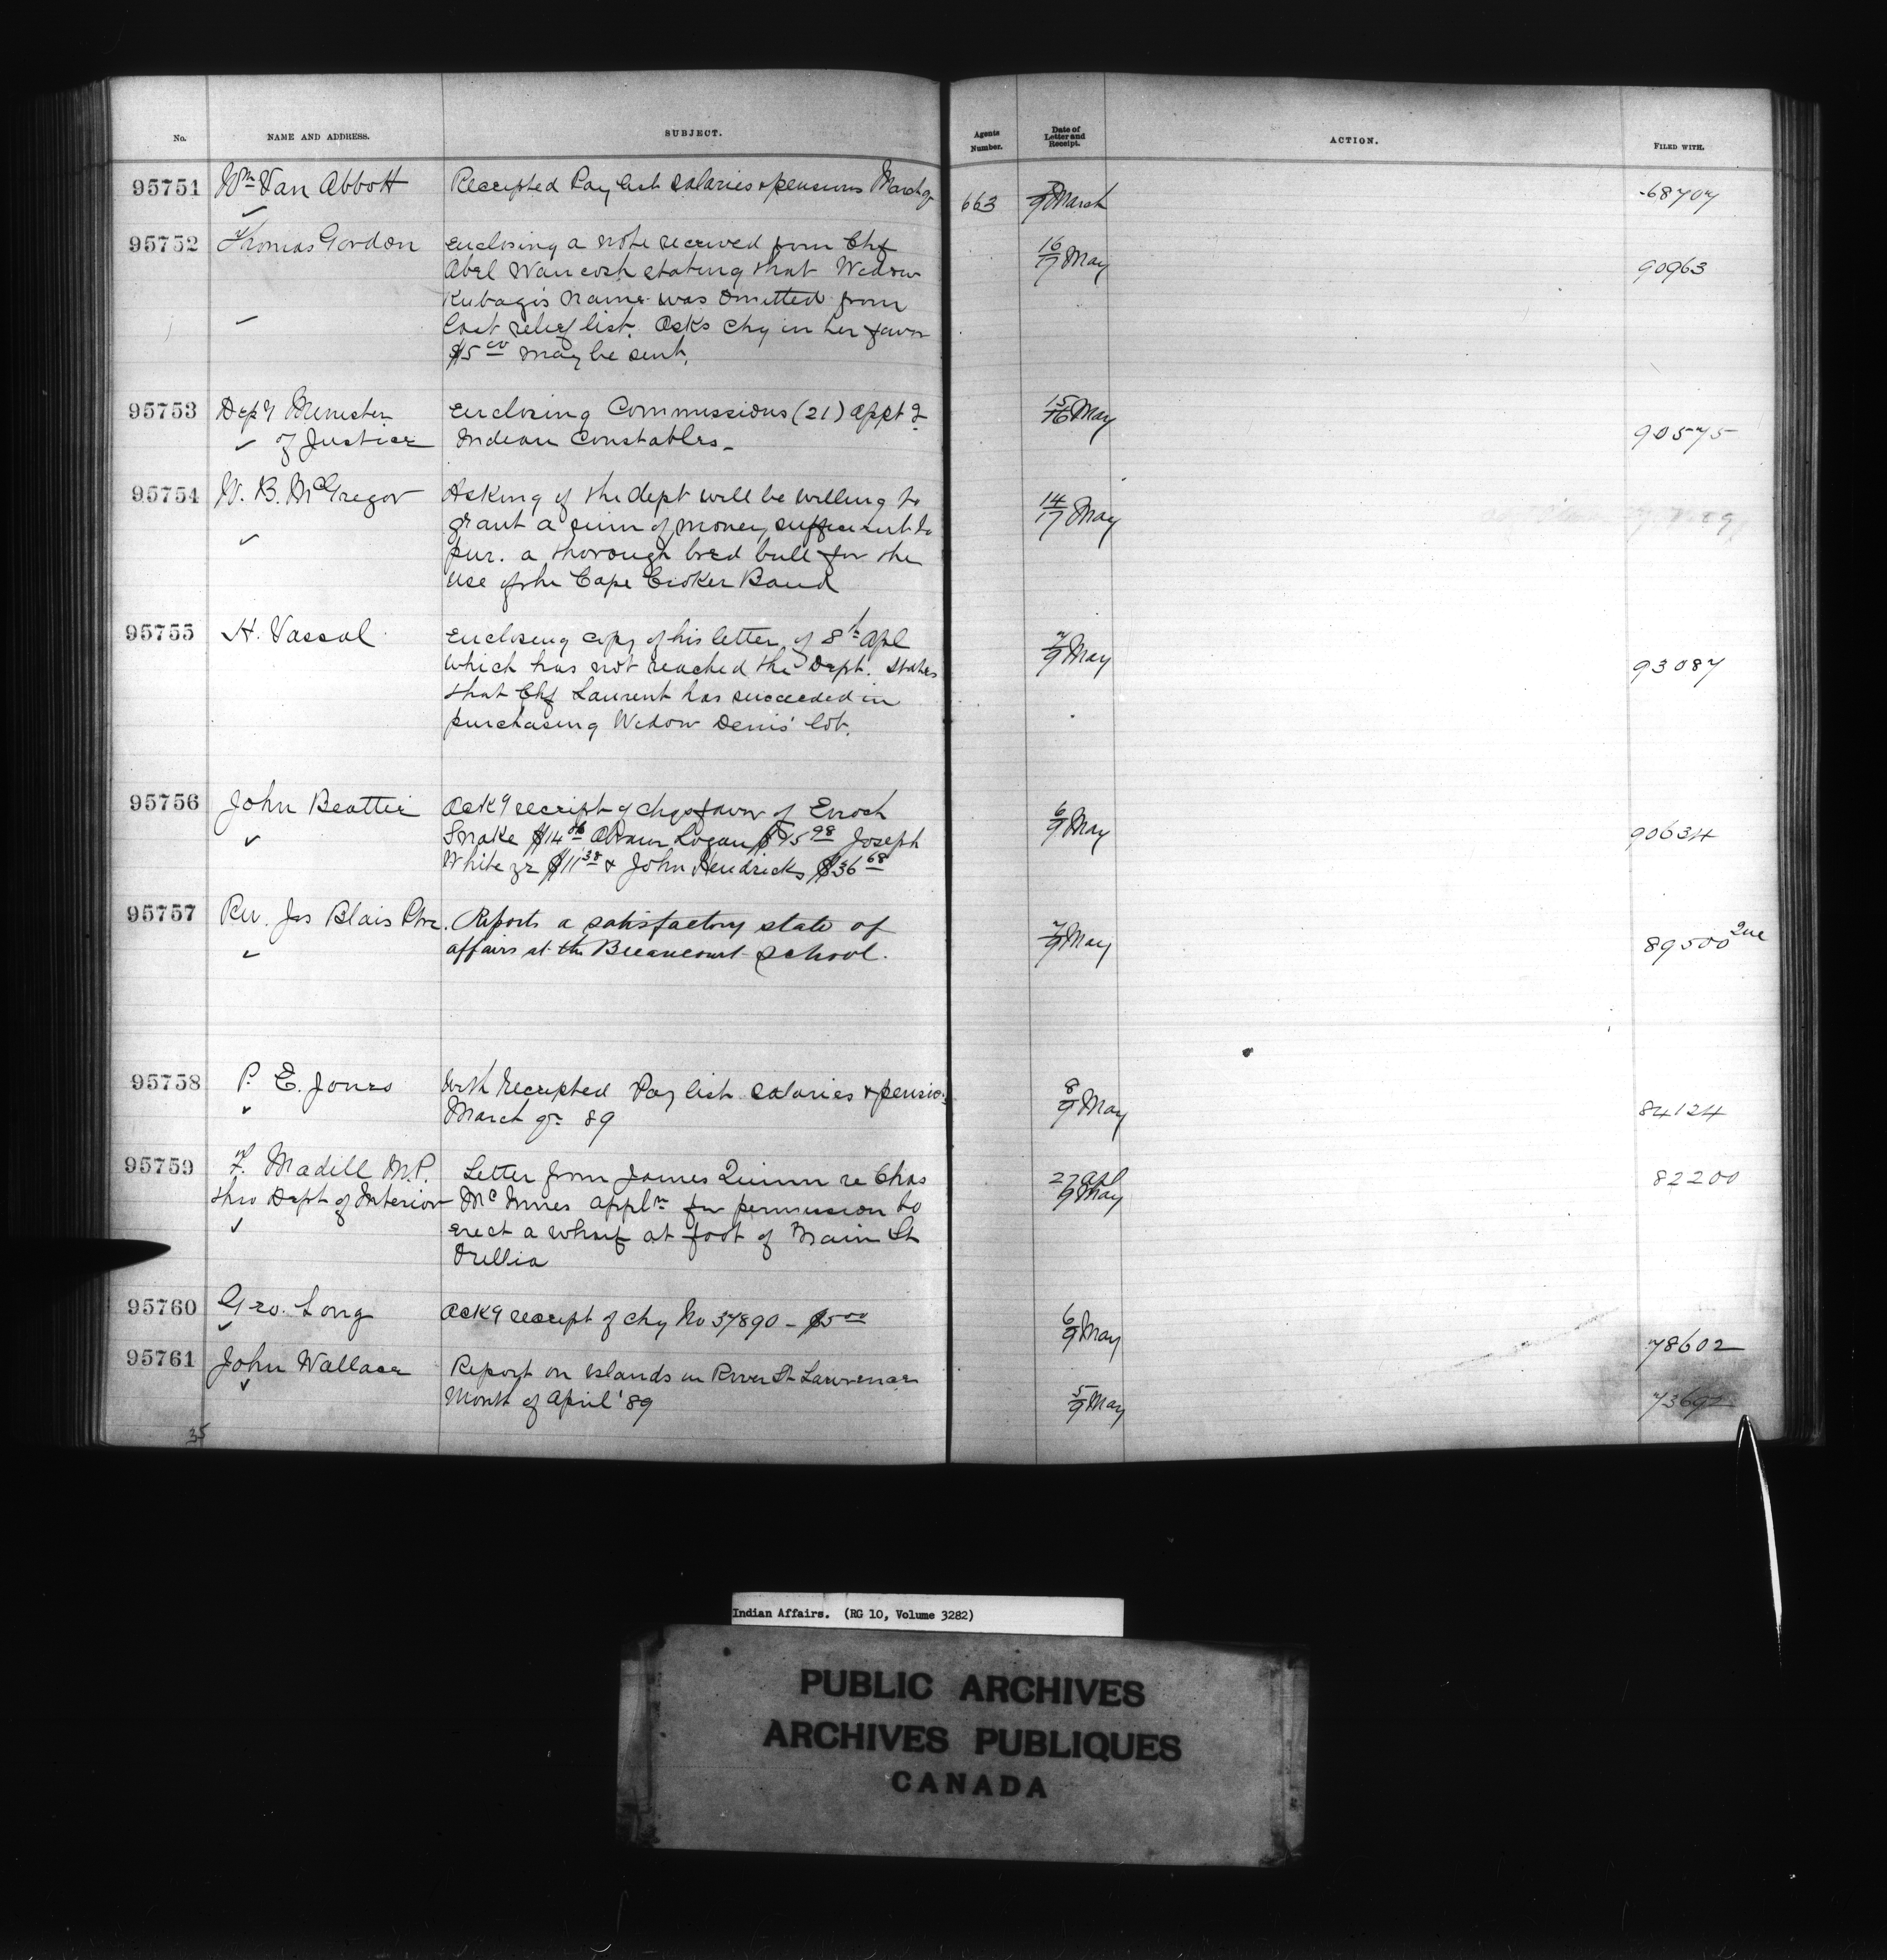 No. NAME AND ADDRESS. SUBJECT. Agents Number. Date of Letter and Receipt. ACTION. FILED WITH.
95751 Wm Van Abbott Receipted Pay list salaries & pensions March qr 663 7/9 March 68707
95752 Thomas Gordon Enclosing a note received from Chf 16/17 May 90963
Abel Wau cosh stating that Widow
Kubagi's name was omitted from
last relief list. Asks chq in her favor
$5.00 may be sent.
95753 Depy Minister Enclosing Commissions (21) appt of 15/16 May 90575
of Justice Indian Constables _
95754 W. B. McGregor Asking if the dept will be willing to 14/17 May
grant a sum of money sufficient to
pur. a thorough bred bull for the
use of the Cape Croker Band
95755 H. Vassal Enclosing copy of his letter of 8th Apl 7/9 May 93087
which has not reached the Dept. States
that Chf Laurent has succeeded in
purchasing Widow Denis' lot.
95756 John Beattie Ackg receipt of chqs favor of Enoch 6/9 May 90634
Snake $14 Abram Logan $ 98 Joseph
White jr $11 38 & John Hendricks $36 68
95757 Rev. Jos Blais Ptre. Reports a satisfactory state of 7/9 May 89500 2ne
affairs at the Becancourt School.
95758 P. E. Jones With Receipted Pay list salaries & pensions 8/9 May 84124
March qr 89
95759 F. Madill M.P. Letter from James Quinn re Chas 27 Apl 82200
thro Dept of Interior McInnes appln for permission to 9 May
erect a wharf at foot of Main St
Orillia
95760 Geo. Long Ackg receipt of chq No 37890 - $5 00 6/9 May 78602
95761 John Wallace Report on Islands in River St Lawrence 5/9 May
Month of April '89
35
Indian Affairs. (RG 10, Volume 3282)
PUBLIC ARCHIVES
ARCHIVES PUBLIQUES
CANADA